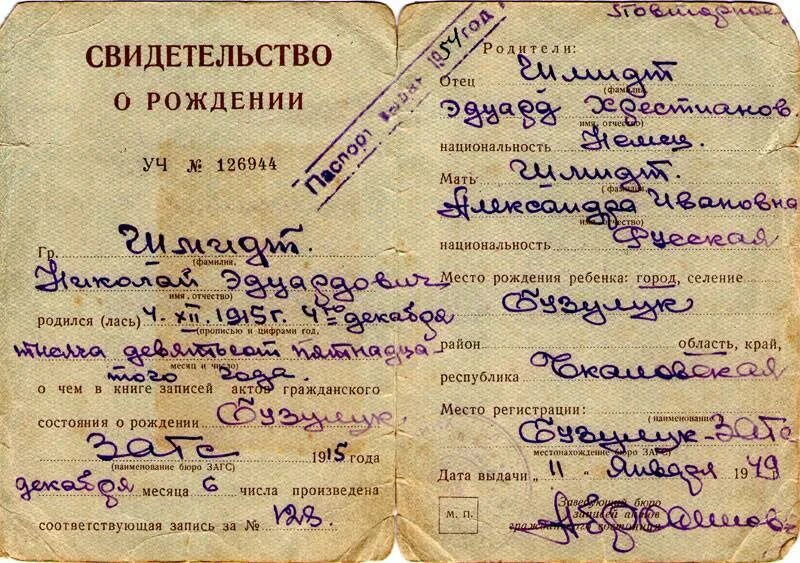 СВИДЕТЕЛЬСТВО
О РОЖДЕНИИ
УЧ № 126944
Гр. Шмидт.
(фамилия,
Николай Эдуардович
имя, отчество)
родился (лась) 4-XII.1915г. 4го декабря
(прописью и цифрами год,
тысяча девятьсот пятнадца-
месяц и число)
того года.
о чем в книге записей актов гражданского
состояния о рождении Бузулук.
ЗАГС 1915 года
(наименование бюро ЗАГС)
декабря месяца 6 числа произведена
соответствующая запись за № 123.
Паспорт выдан 1954 год
Повторное
Родители:
Отец Шмидт
(фамилия,
Эдуард Христианов
имя, отчество)
национальность Немец.
Мать Шмидт.
(фамилия,
Александра Ивановна
имя, отчество)
национальность Русская
Место рождения ребенка: город, селение
Бузулук
район область, край,
республика Чкаловская
Место регистрации:
(наименование
Бузулук-ЗАГС
местонахождение бюро ЗАГС)
Дата выдачи „ 11 “ января 1949
М. П.
Заведующий бюро
записей актов
гражданского состояния